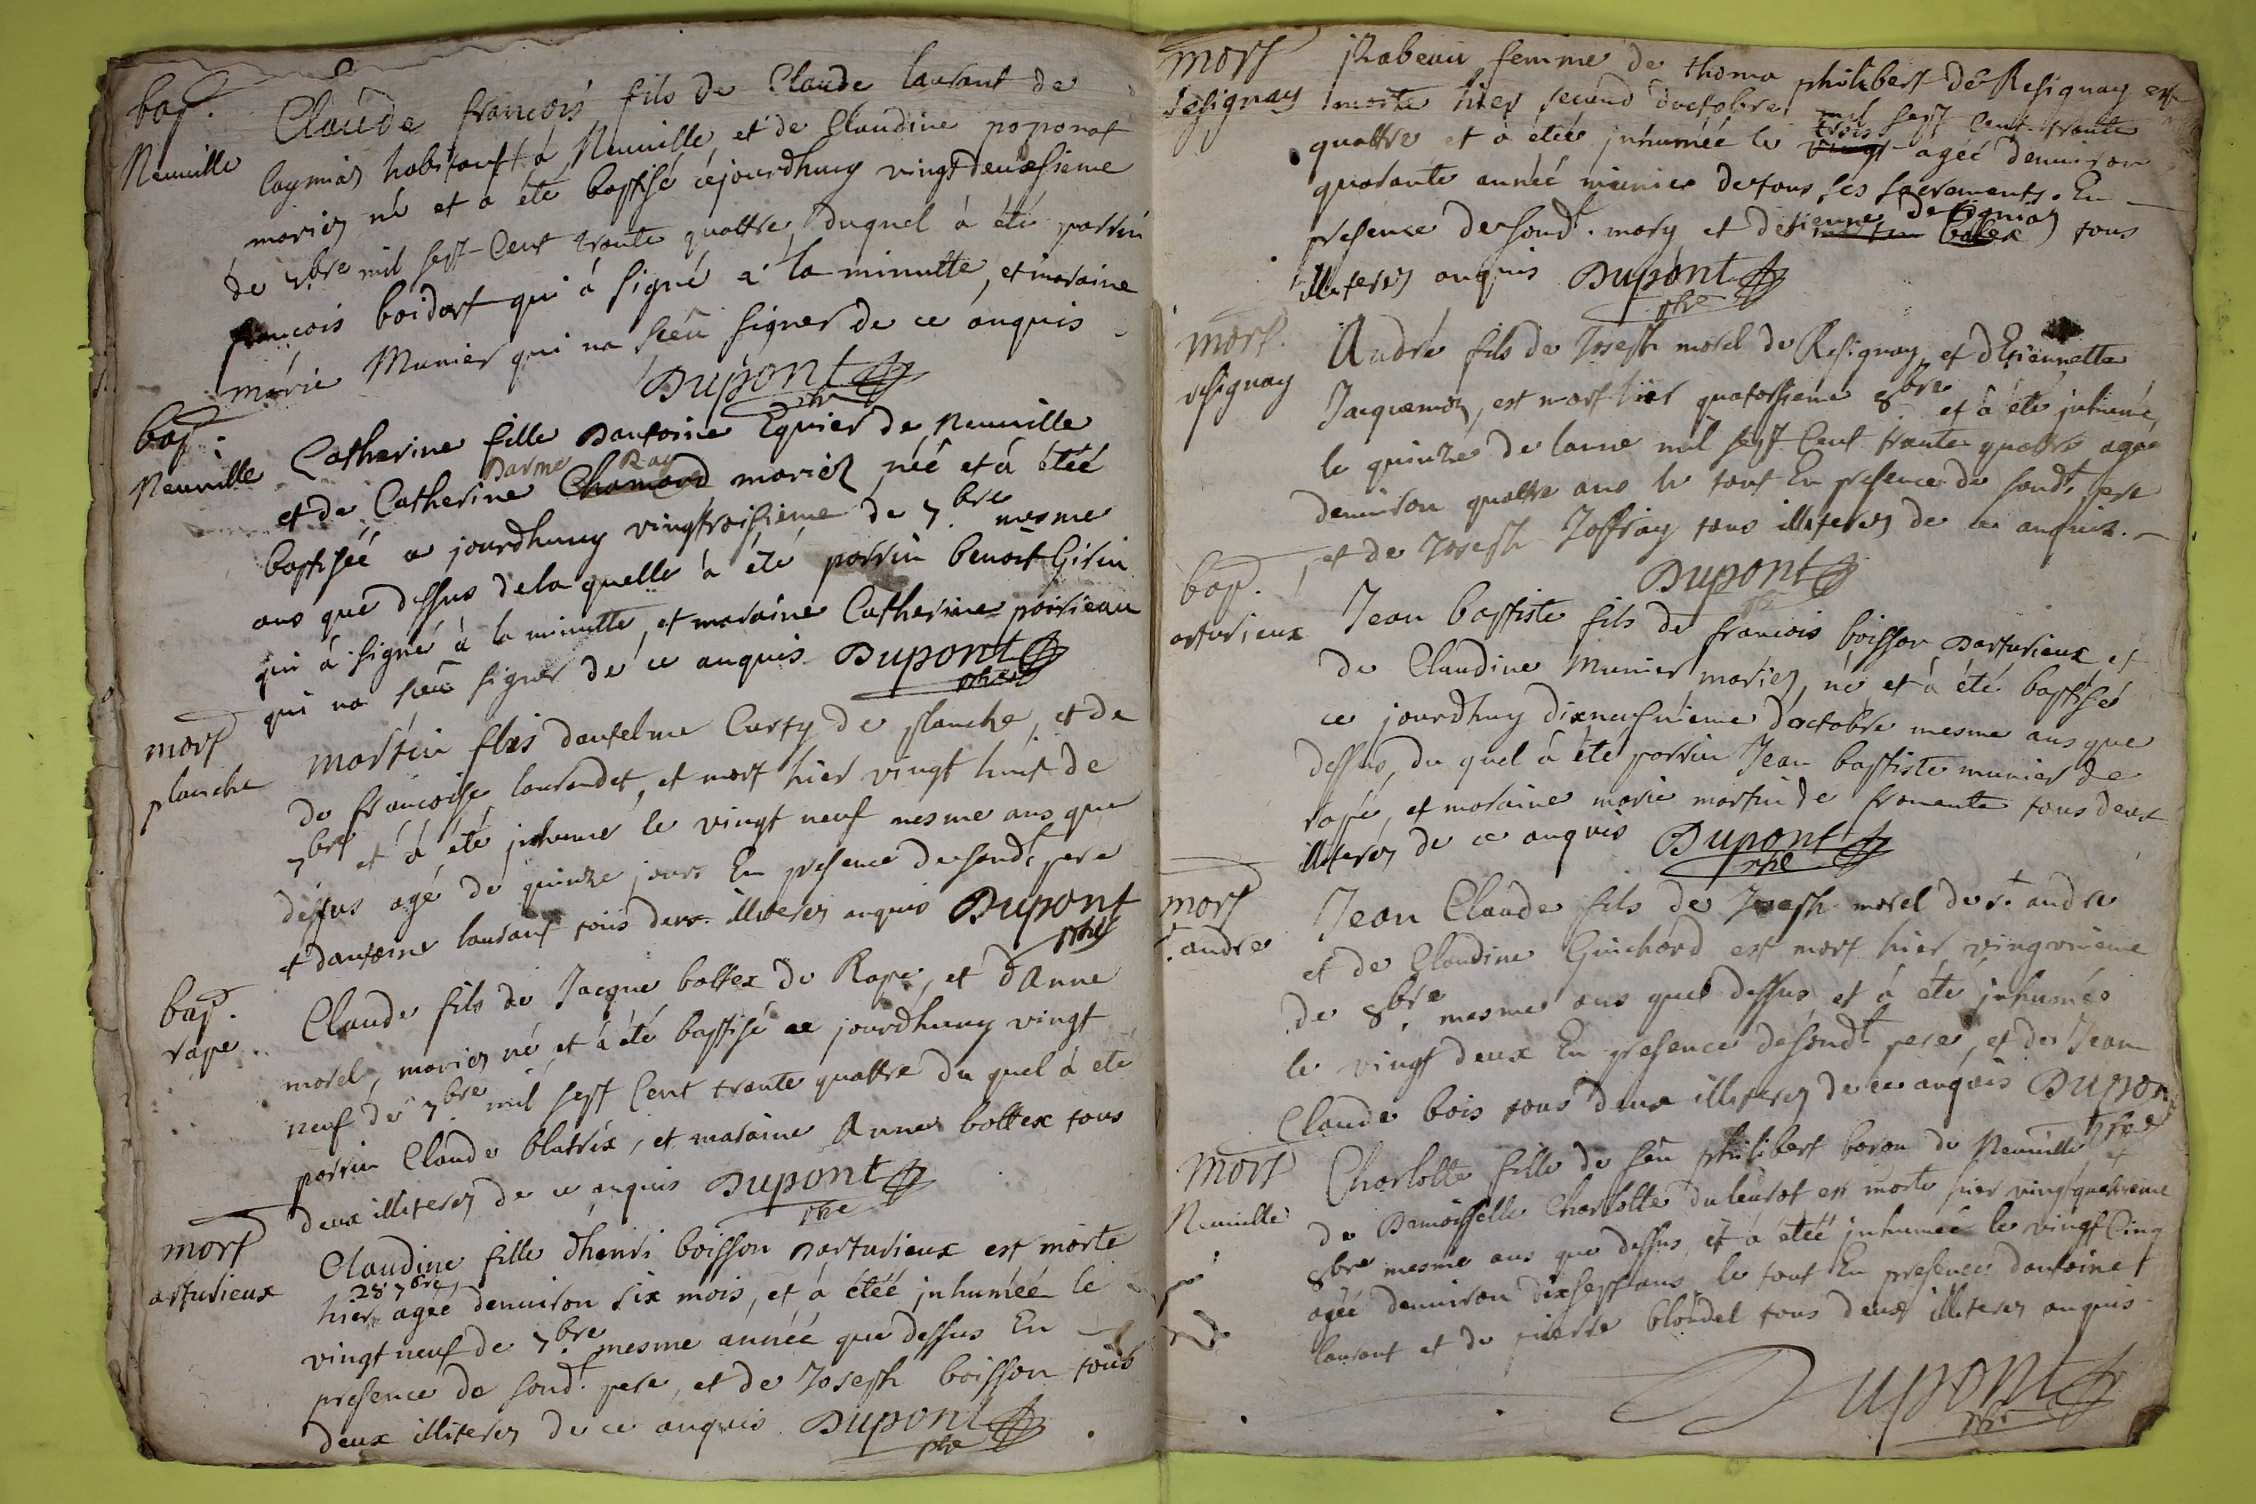 bap.
Neuville
Claude francois fils de Claude laurant de
laymiaz habitant à Neuville, et de Claudine poponat
mariez né et a été baptisé cejourdhuy vingtdeuxsieme
de 7.bre mil sept Cent trante quattre, duquel à été parrin
francois boidart qui à signé a la minutte, et maraine
marie Munier qui na sceu signer de ce anquis
Dupont
ptre
bap.
Neuville
Catherine fille dantoine Eguier de Neuville
et de Catherine Chamard darme Ray mariez, néé et à étéé
baptiséé ce jourdhuy vingtroisieme de 7.bre mesme
ans que dessus de la quelle à été parrin benoit Girin
qui à signé à la minutte, et maraine Catherine poirieau
qui na sceu signer de ce anquis Dupont
ptre
mort
planche
Martin filxs dantelme Curty de planche, et de
de francoise laurandet, et mort hier vingt huit de
7bre et à été jnhumé le vingt neuf mesme ans que
dessus agé de quinze jours En presence de sondt. pere
et dantoine laurant tous deux illiterez anquis Dupont
ptre
bap.
rape
Claude fils de Jacque bottex de Rape, et dAnne
morel, mariez né et à été baptisé ce jourdhuy vingt
neuf de 7bre mil sept Cent trante quattre du quel à été
parrin Claude blatrix, et maraine Anne bottex tous
deux illiterez de ce anquis Dupont
ptre
mort
arturieux
Claudine fille dhenri boisson darturieux est morte
28 7bre
hier agéé denuiron six mois, et à étéé jnhuméé le
vingt neuf de 7.bre mesme annéé que dessus En
presence de sondt. pere, et de Joseph boisson tous
deux illiterez de ce anquis Dupont
ptre
mort
Resignay
jsabeau femme de thoma philibert de Resignay est
morte hier second doctobre mil sept Cent trante
quattre et à étéé jnhuméé le vingt trois agéé denuiron
quarante annéé munie de tous ses sacraments. En
presence de sondt. mary et detienne
bottex tous
illiterez anquis Dupont
ptre
mort.
resignay
André fils de Joseph morel de Resignay, et dEtiennette
Jacquemoz, est mort hier quatorsieme 8bre et à été jnhumé
le quinze de lanne mil sept Cent trante quattre agé
denuiron quattre ans le tout En presence de sondt. pere
, et de Joseph Joffray tous illiterez de ce anquis.
Dupont
bap.
arturieux
Jean baptiste fils de francois boisson darturieux et
de Claudine Munier mariez, né et à été baptisé
ce jourdhuy dixneufuieme doctobre mesme ans que
dessus, du quel à été parrin Jean baptiste munier de
rape, et maraine marie martin de fromente tous deux
illiterez de ce anquis Dupont
ptre
mort
St. andre
Jean Claude fils de Joseph morel de St. andre
et de Claudine Guichard est mort hier vingunieme
de 8bre. mesme ans que dessus et à été jnhumé
le vingt deux En presence de sondt. pere, et de Jean
Claude bois tous deux illiterez de ce anquis Dupont
ptre
mort
Neuville
Charlotte fille de feu philibert baron de Neuville et
de Damoisselle Charlotte duleurot est morte hier vingtquatrieme
8bre mesme ans que dessus, et à étéé jnhuméé le vingt Cinq
agéé denuiron dixsept ans le tout En presence dantoine
laurant et de pierre blondel tous deux illiterez anquis
Dupont
ptre